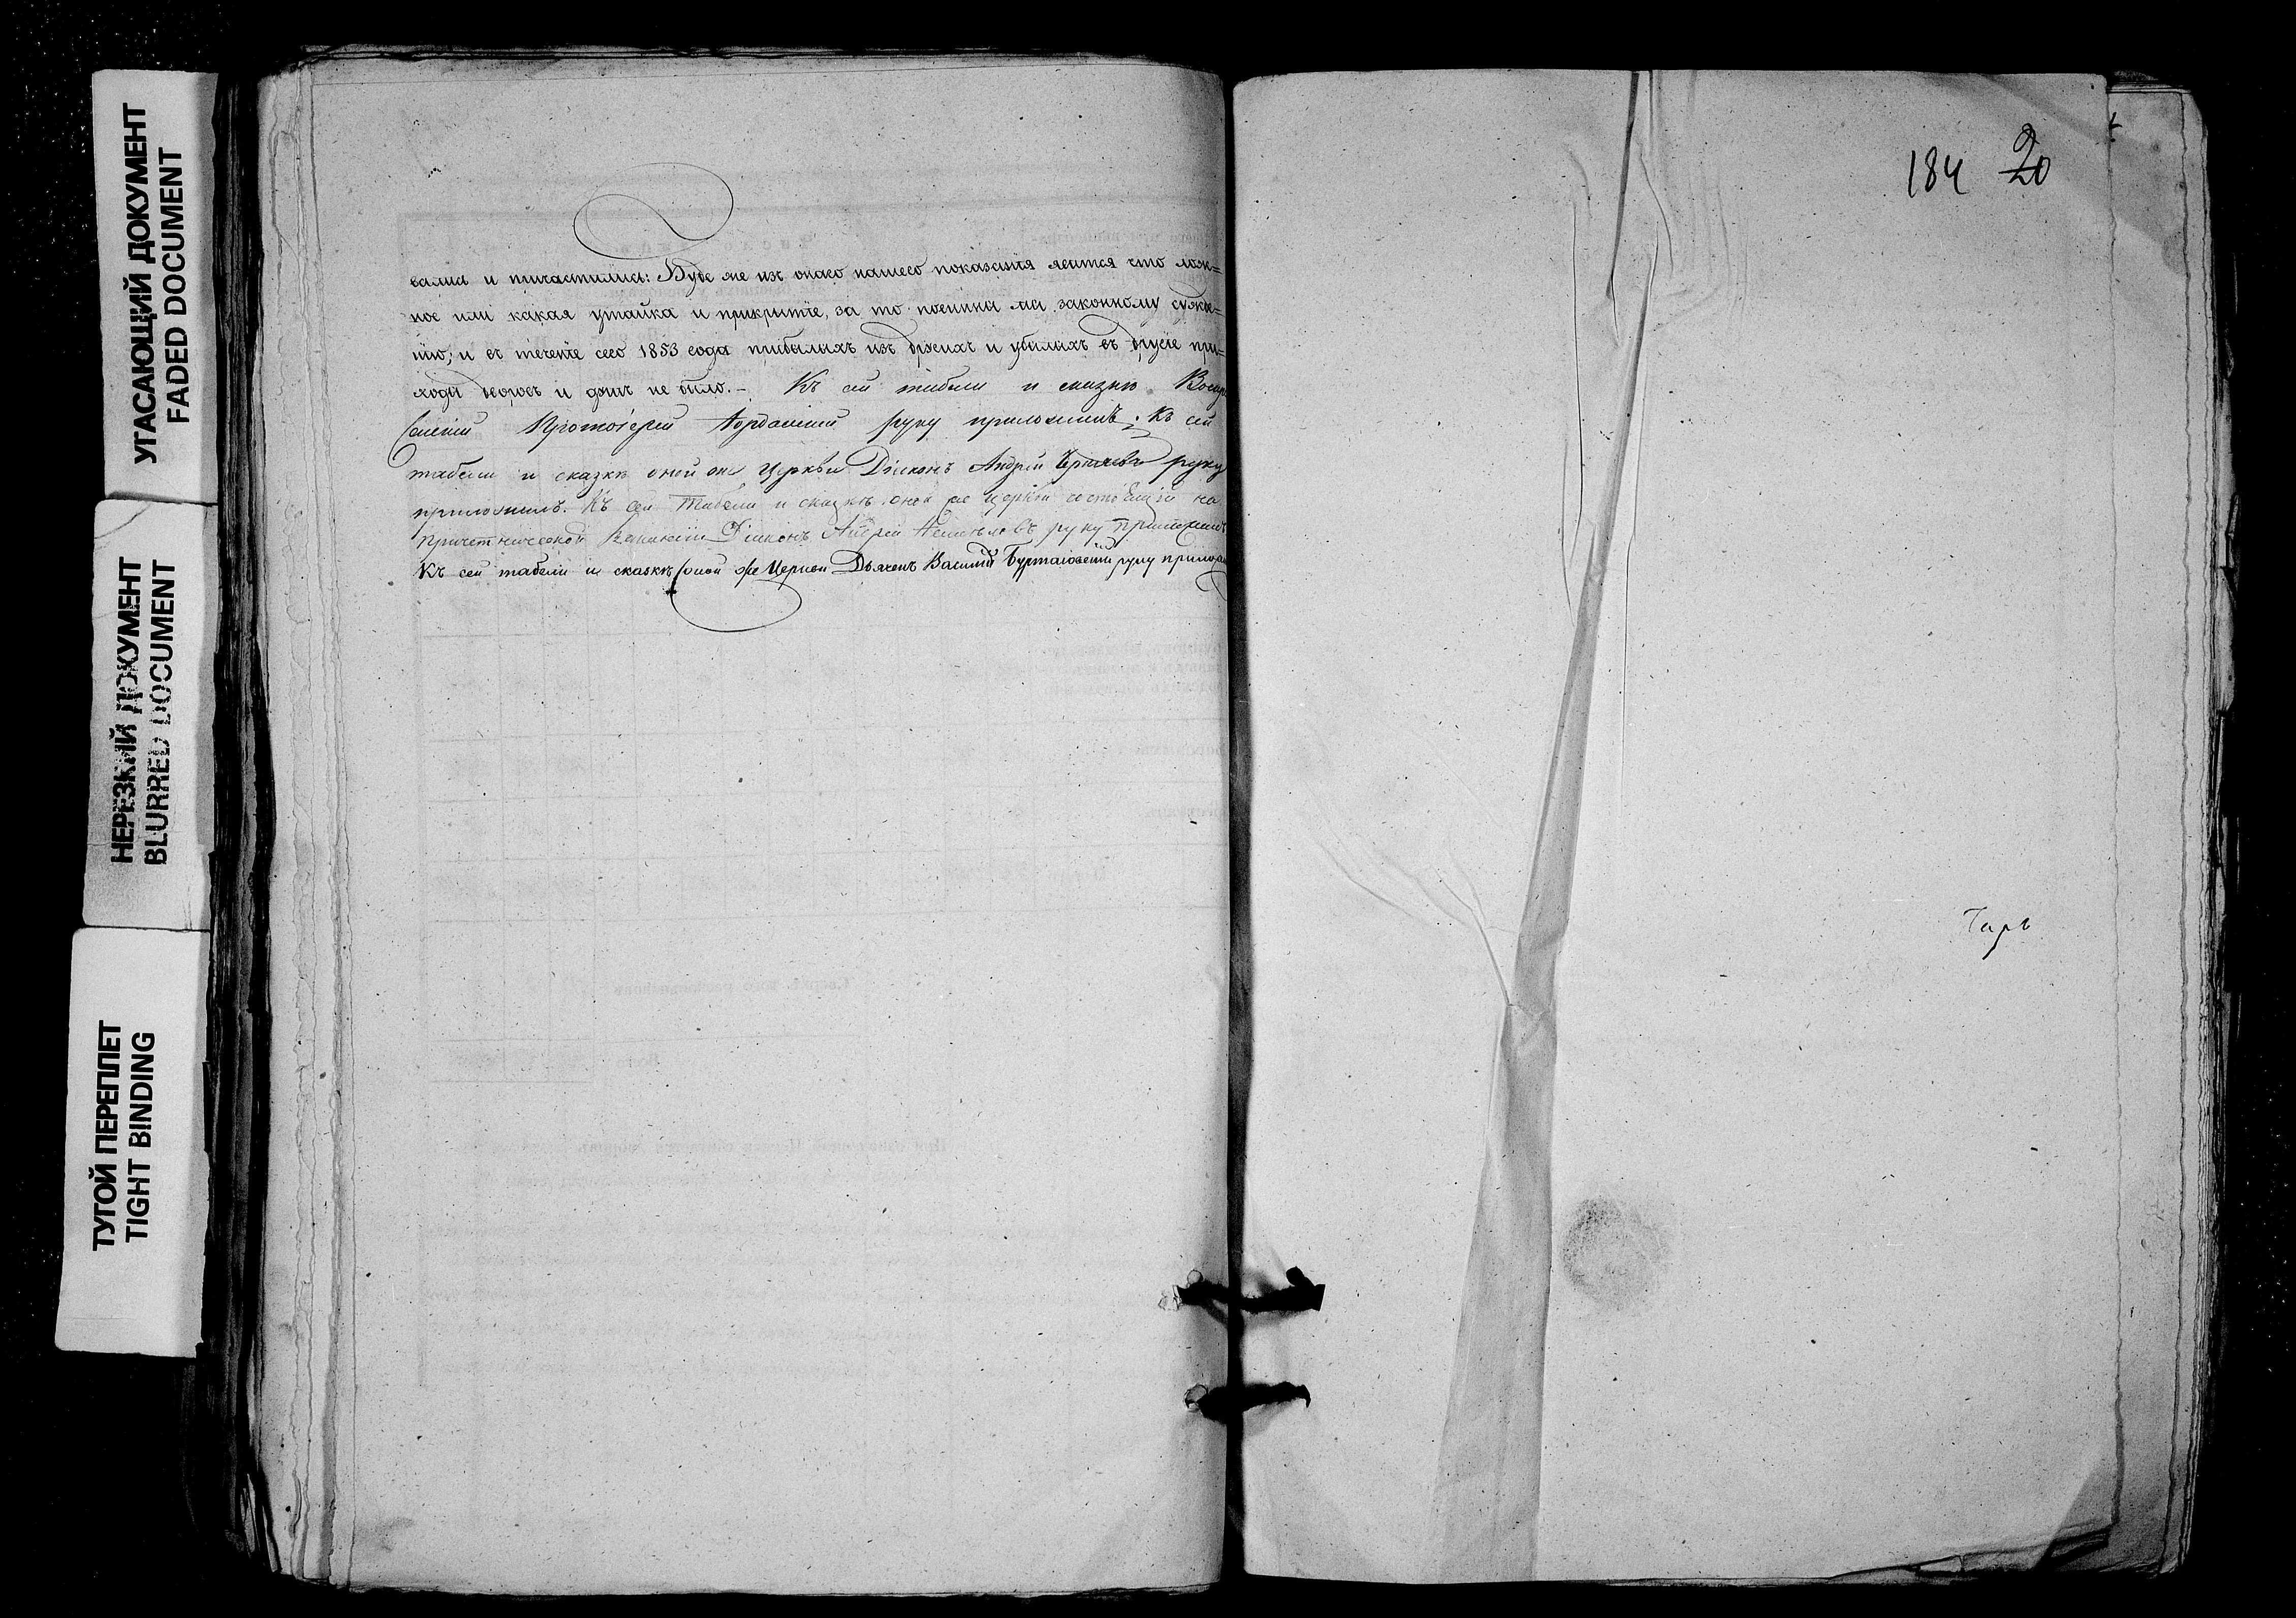 УГАСАЮЩИЙ ДОКУМЕНТ
FADED DOCUMENT
НЕРЕЗКИЙ ДОКУМЕНТ
BLURRED DOCUMENT
ТУГОЙ ПЕРЕПЛЕТ
TIGHT BINDING
вались и причастились: Буде же изъ онаго нашего показанія явится что лож=
ное или какая утайка и прикрытіе, за то повинны мы законному сужде=
нію; и въ теченіе сего 1853 года прибылыхъ изъ другихъ и убылыхъ въ другіе при=
ходы дворовъ и душъ не было. - Къ сей табели и сказкѣ
Протоіерей руку приложилъ. Къ сей
табели и сказкѣ оной же церкви Діаконъ Андрей руку
приложилъ. Къ сей табели и сказкѣ оной же церкви состоящій на
причетнической Діаконъ руку приложилъ
Къ сей табели и сказкѣ оной же Церкви Дьячекъ Василій руку прилож
184 20